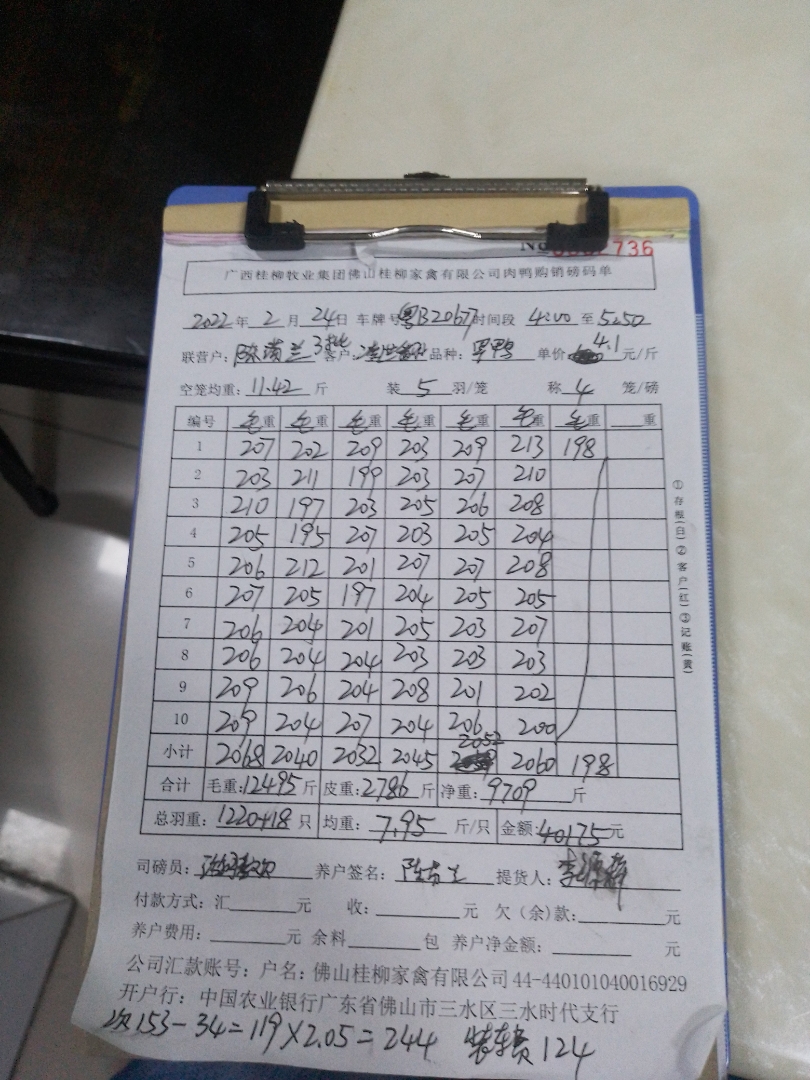 No 736
广西桂柳牧业集团佛山桂柳家禽有限公司肉鸭购销磅码单
2022年 2月 24日 车牌号 粤B2067 时间段 4:00 至 5:50
联营户: 3批 客户: 品种: 旱鸭 单价 4.1 元/斤
空笼均重: 11.42 斤 装 5 羽/笼 称 4 笼/磅
编号 毛重 毛重 毛重 毛重 毛重 毛重 毛重 重
1 207 202 209 203 209 213 198
2 203 211 199 203 207 210
3 210 197 203 205 206 208
4 205 195 207 203 205 204
5 206 212 201 207 207 208
6 207 205 197 204 205 205
7 206 204 201 205 203 207
8 206 204 204 203 203 203
9 209 206 204 208 201 202
10 209 204 207 204 206 200
小计 2068 2040 2032 2045 2052 2060 198
合计 毛重:12495斤 皮重:2786斤 净重:9709斤
总羽重: 1220+18 只 均重: 7.95 斤/只 金额:40175元
司磅员: 养户签名: 提货人:
付款方式: 汇 元 收: 元 欠(余)款: 元
养户费用: 元 余料 包 养户净金额: 元
公司汇款账号: 户名: 佛山桂柳家禽有限公司 44-440101040016929
开户行: 中国农业银行广东省佛山市三水区三水时代支行
次153-34=119×2.05=244 装车费124
①存根(白)②客户(红)③记账(黄)